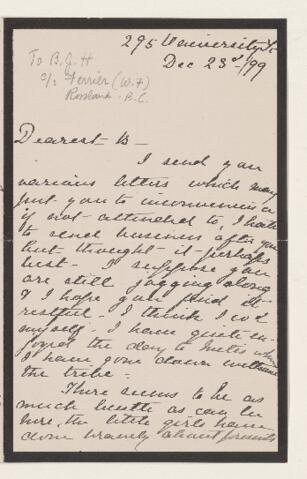 295 University St.
Dec 23rd/99
To B.J.H
c/o Ferrier (W.F)
Rossland. B.C.
Dearest B—
I send you
various letters which may
put you to inconvenience
if not attended to, I hate
to send business after you
but thought it perhaps
best— I suppose you
are still jogging along
& I hope you find it
restful. I think I wd
myself. I have quite en-
joyed the day to Metis when
I have gone down without
the tribe—
There seems to be as
much bustle as can be
here, the little girls have
done bravely about presents